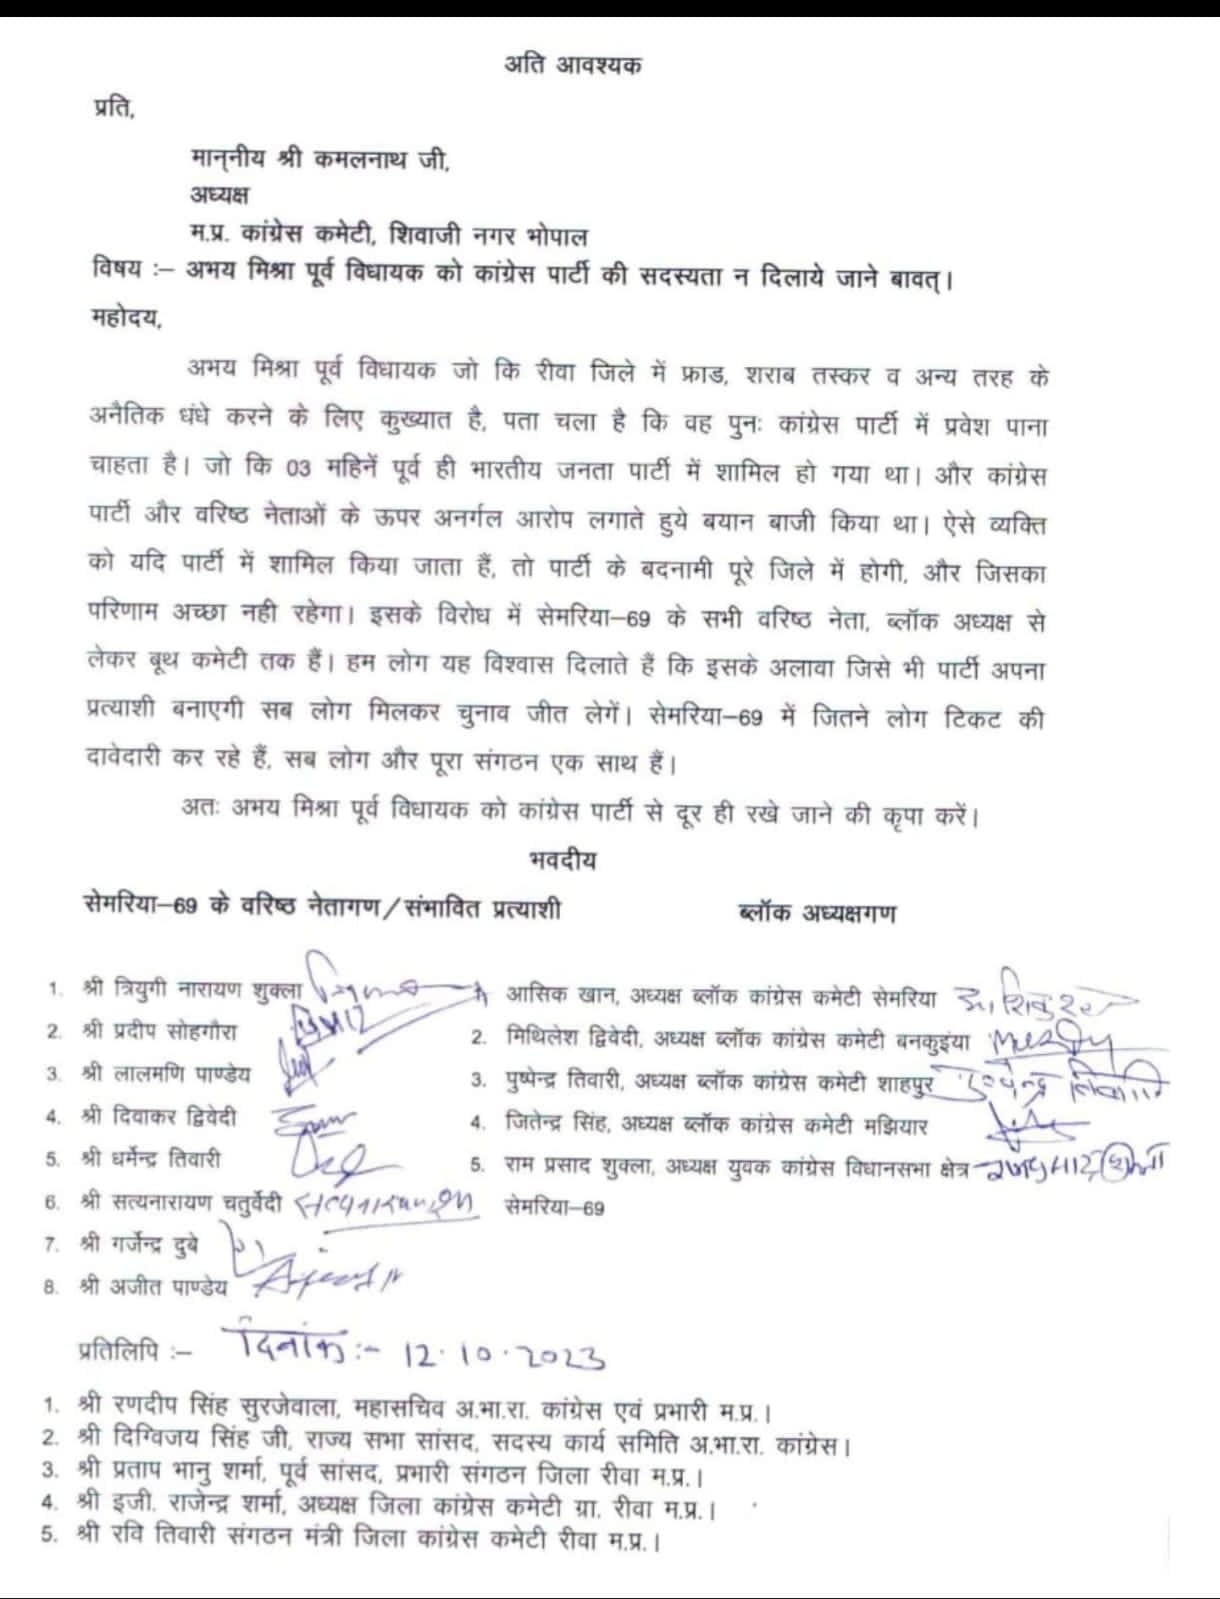 अति आवश्यक
प्रति,
मान्नीय श्री कमलनाथ जी,
अध्यक्ष
म.प्र. कांग्रेस कमेटी, शिवाजी नगर भोपाल
विषय :– अभय मिश्रा पूर्व विधायक को कांग्रेस पार्टी की सदस्यता न दिलाये जाने बावत्।
महोदय,
अभय मिश्रा पूर्व विधायक जो कि रीवा जिले में फ्राड, शराब तस्कर व अन्य तरह के
अनैतिक धंधे करने के लिए कुख्यात है, पता चला है कि वह पुनः कांग्रेस पार्टी में प्रवेश पाना
चाहता है। जो कि 03 महिनें पूर्व ही भारतीय जनता पार्टी में शामिल हो गया था। और कांग्रेस
पार्टी और वरिष्ठ नेताओं के ऊपर अनर्गल आरोप लगाते हुये बयान बाजी किया था। ऐसे व्यक्ति
को यदि पार्टी में शामिल किया जाता हैं, तो पार्टी के बदनामी पूरे जिले में होगी, और जिसका
परिणाम अच्छा नही रहेगा। इसके विरोध में सेमरिया–69 के सभी वरिष्ठ नेता, ब्लॉक अध्यक्ष से
लेकर बूथ कमेटी तक हैं। हम लोग यह विश्वास दिलाते हैं कि इसके अलावा जिसे भी पार्टी अपना
प्रत्याशी बनाएगी सब लोग मिलकर चुनाव जीत लेगें। सेमरिया–69 में जितने लोग टिकट की
दावेदारी कर रहे हैं, सब लोग और पूरा संगठन एक साथ हैं।
अतः अभय मिश्रा पूर्व विधायक को कांग्रेस पार्टी से दूर ही रखे जाने की कृपा करें।
भवदीय
सेमरिया–69 के वरिष्ठ नेतागण/संभावित प्रत्याशी
1. श्री त्रियुगी नारायण शुक्ला
2. श्री प्रदीप सोहगौरा
3. श्री लालमणि पाण्डेय
4. श्री दिवाकर द्विवेदी
5. श्री धर्मेन्द्र तिवारी
6. श्री सत्यनारायण चतुर्वेदी
7. श्री गर्जेन्द्र दुबे
8. श्री अजीत पाण्डेय
ब्लॉक अध्यक्षगण
आसिक खान, अध्यक्ष ब्लॉक कांग्रेस कमेटी सेमरिया
2. मिथिलेश द्विवेदी, अध्यक्ष ब्लॉक कांग्रेस कमेटी बनकुइंया
3. पुष्पेन्द्र तिवारी, अध्यक्ष ब्लॉक कांग्रेस कमेटी शाहपुर
4. जितेन्द्र सिंह, अध्यक्ष ब्लॉक कांग्रेस कमेटी मझियार
5. राम प्रसाद शुक्ला, अध्यक्ष युवक कांग्रेस विधानसभा क्षेत्र
सेमरिया–69
प्रतिलिपि :– दिनांक :- 12.10.2023
1. श्री रणदीप सिंह सुरजेवाला, महासचिव अ.भा.रा. कांग्रेस एवं प्रभारी म.प्र.।
2. श्री दिग्विजय सिंह जी, राज्य सभा सांसद, सदस्य कार्य समिति अ.भा.रा. कांग्रेस।
3. श्री प्रताप भानु शर्मा, पूर्व सांसद, प्रभारी संगठन जिला रीवा म.प्र.।
4. श्री इजी. राजेन्द्र शर्मा, अध्यक्ष जिला कांग्रेस कमेटी ग्रा. रीवा म.प्र.।
5. श्री रवि तिवारी संगठन मंत्री जिला कांग्रेस कमेटी रीवा म.प्र.।